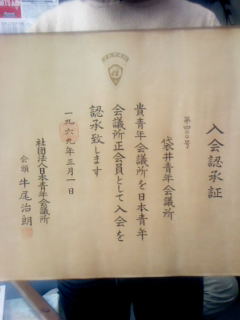 入会認承証
第四二〇号
袋井青年会議所
貴青年会議所を日本青年
会議所正会員として入会を
認承致します
一九六九年三月一日
社団法人日本青年会議所
会頭 牛尾治朗